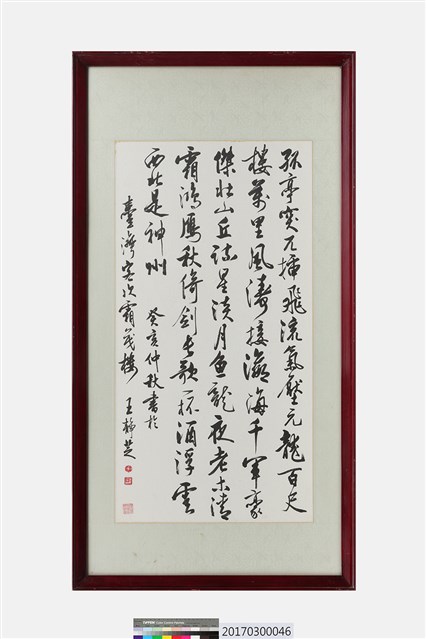 孤亭突兀插飛流氣壓元龍百尺
樓萬里風濤接瀛海千年豪
傑壯山丘疏星淡月魚龍夜老木清
霜鴻鴈秋倚劍長歌一杯酒浮雲
西北是神州 癸亥仲秋書於
臺灣客次霜茂樓 王靜芝
20170300046